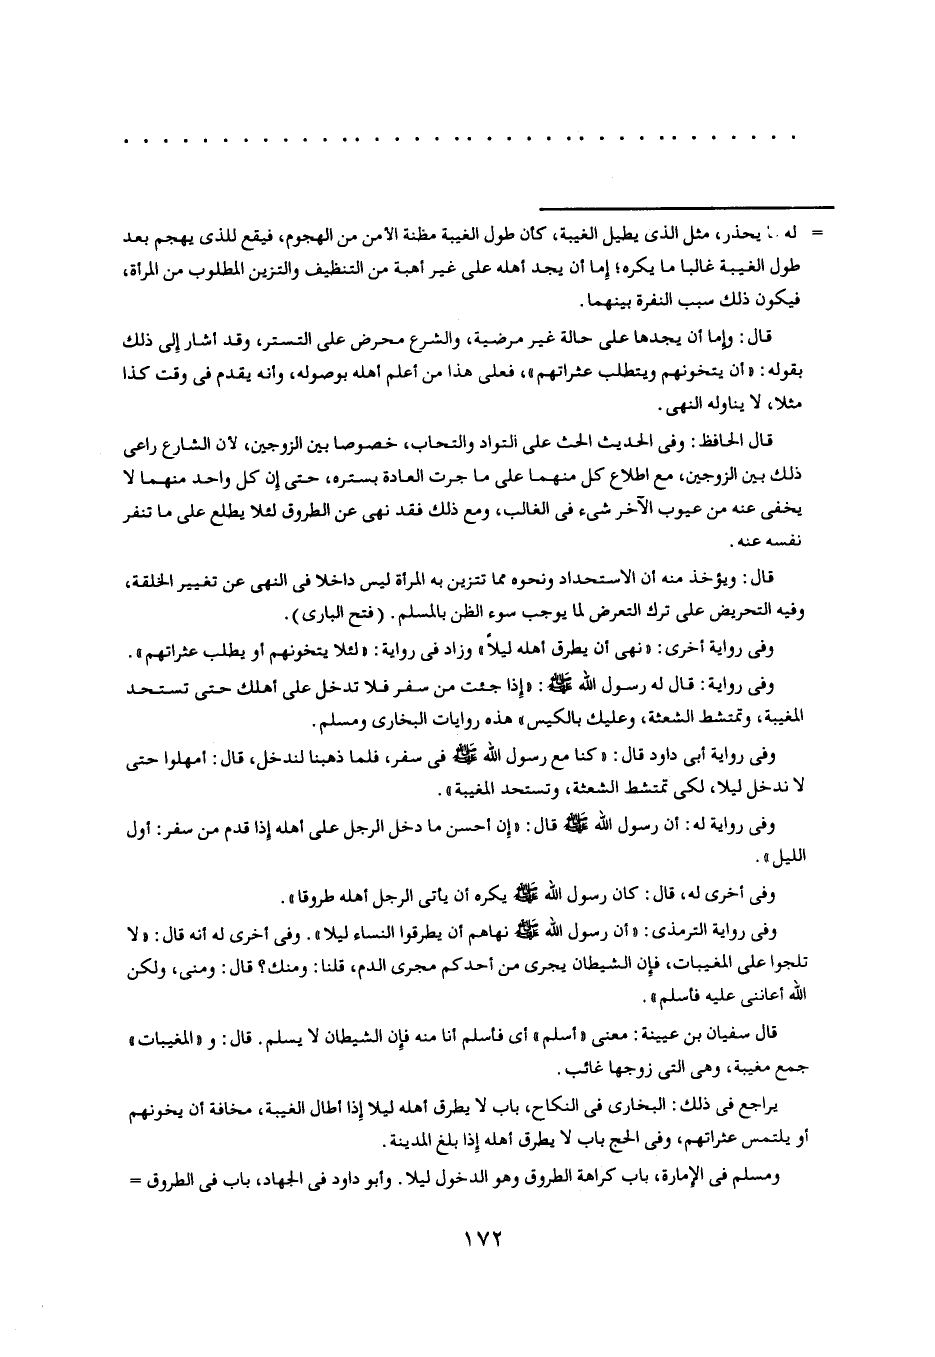 . . . . . . . . . . . . . . . . . . . . . . . . . . . . . . . . . . .
= له يحذر، مثل الذى يطيل الغيبة، كأن طول الغيبة مظنة الأمن من الهجوم، فيقع للذى يهجم بعد
طول الغيبة غالبا ما يكره؛ إما أن يجد أهله على غير أهبة من التنظيف والتزين المطلوب من المرأة،
فيكون ذلك سبب النفرة بينهما.
قال: وإما أن يجدها على حالة غير مرضية، والشرع محرض على التستر، وقد أشار إلى ذلك
بقوله: «أن يتخونهم ويتطلب عثراتهم»، فعلى هذا من أعلم أهله بوصوله، وأنه يقدم فى وقت كذا
مثلا، لا يناوله النهى.
قال الحافظ: وفى الحديث الحث على التواد والتحاب، خصوصا بين الزوجين، لأن الشارع راعى
ذلك بين الزوجين، مع اطلاع كل منهما على ما جرت العادة بستره، حتى إن كل واحد منهما لا
يخفى عنه من عيوب الآخر شىء فى الغالب، ومع ذلك فقد نهى عن الطروق لئلا يطلع على ما تنفر
نفسه عنه.
قال: ويؤخذ منه أن الاستحداد ونحوه مما تتزين به المرأة ليس داخلا فى النهى عن تغيير الخلقة،
وفيه التحريض على ترك التعرض لما يوجب سوء الظن بالمسلم. (فتح البارى).
وفى رواية أخرى: «نهى أن يطرق أهله ليلاً» وزاد فى رواية: «لئلا يتخونهم أو يطلب عثراتهم».
وفى رواية: قال له رسول الله ﷺ: «إذا جئت من سفر فلا تدخل على أهلك حتى تستحد
المغيبة، وتمتشط الشعثة، وعليك بالكيس» هذه روايات البخارى ومسلم.
وفى رواية أبى داود قال: «كنا مع رسول الله ﷺ فى سفر، فلما ذهبنا لندخل، قال: أمهلوا حتى
لا ندخل ليلا، لكى تمتشط الشعثة، وتستحد المغيبة».
وفى رواية له: أن رسول الله ﷺ قال: «إن أحسن ما دخل الرجل على أهله إذا قدم من سفر: أول
الليل».
وفى أخرى له، قال: كان رسول الله ﷺ يكره أن يأتى الرجل أهله طروقا».
وفى رواية الترمذى: «أن رسول الله ﷺ نهاهم أن يطرقوا النساء ليلا». وفى أخرى له أنه قال: «لا
تلجوا على المغيبات، فإن الشيطان يجرى من أحدكم مجرى الدم، قلنا: ومنك؟ قال: ومنى، ولكن
الله أعاننى عليه فأسلم».
قال سفيان بن عيينة: معنى «أسلم» أى فأسلم أنا منه فإن الشيطان لا يسلم. قال: و «المغيبات»
جمع مغيبة، وهى التى زوجها غائب.
يراجع فى ذلك: البخارى فى النكاح، باب لا يطرق أهله ليلا إذا أطال الغيبة، مخافة أن يخونهم
أو يلتمس عثراتهم، وفى الحج باب لا يطرق أهله إذا بلغ المدينة.
ومسلم فى الإمارة، باب كراهة الطروق وهو الدخول ليلا. وأبو داود فى الجهاد، باب فى الطروق =
١٧٢